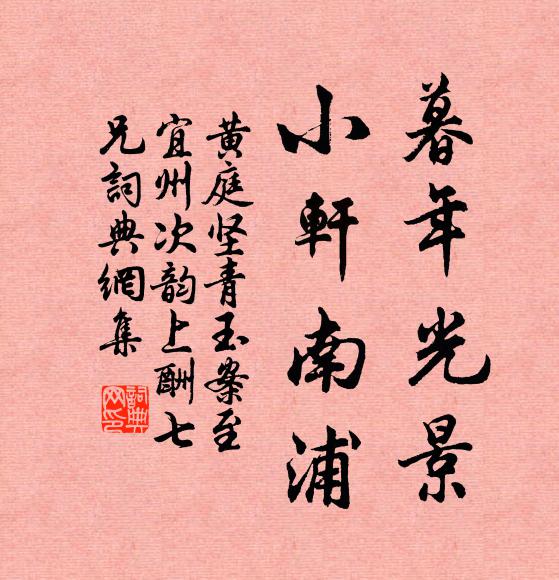 暮年光景
小軒南浦
黄庭坚青玉案至
宜州次韵上酬七
兄詞典網集
詞典
网印